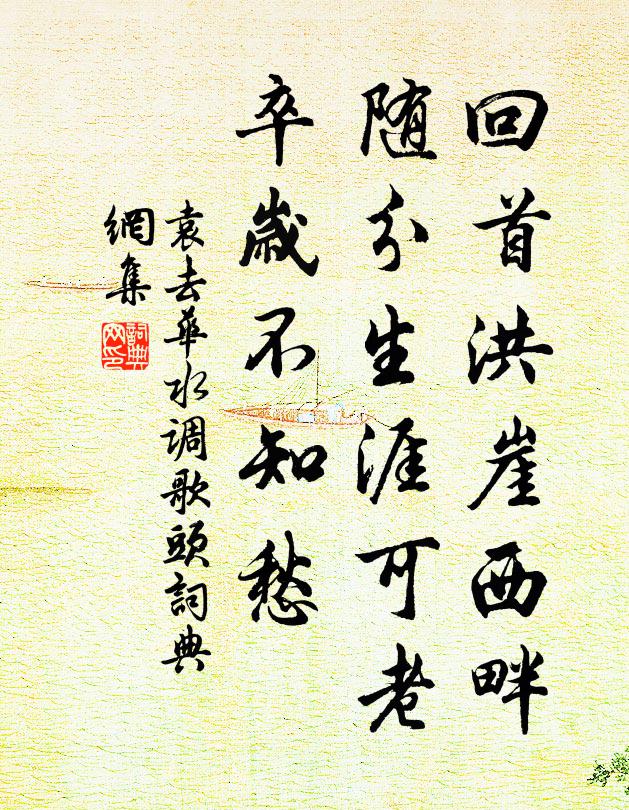 回首洪崖西畔
随分生涯可老
卒歲不知愁
袁去華水调歌頭詞典
網集
詞典
网印